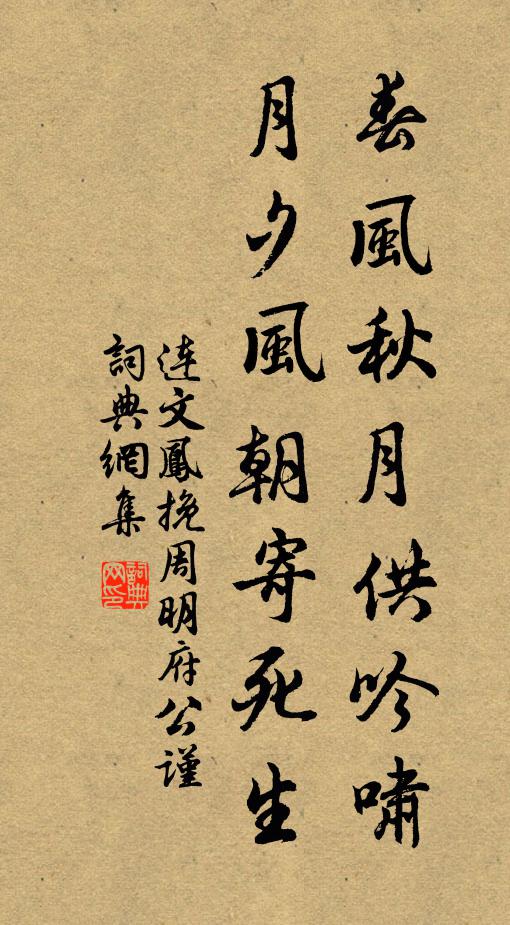 春風秋月供吟嘯
月夕風朝寄死生
連文鳳挽周明府公謹
詞典網集
詞典网印